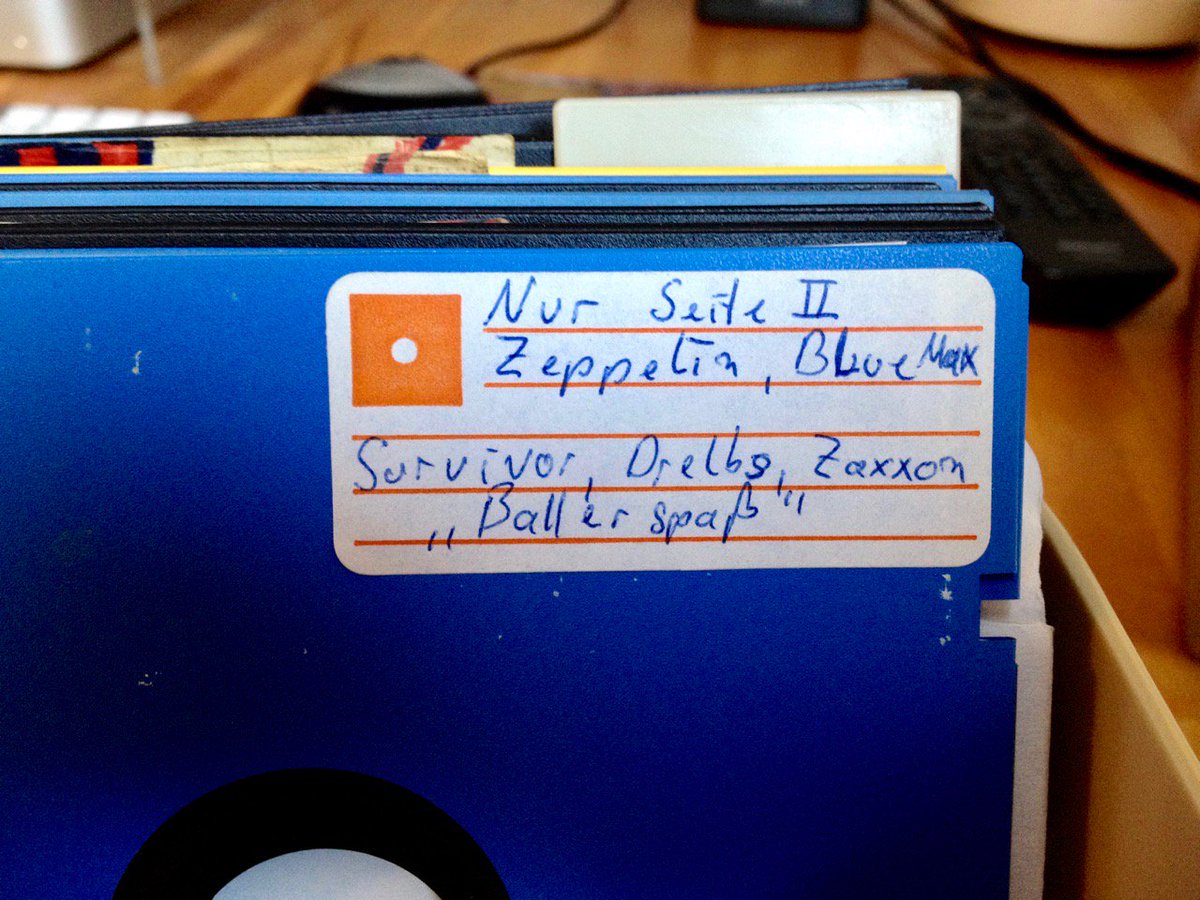 Nur Seite II
Zeppelin, Blue Max
Survivor, Drelbs, Zaxxon
„Ballerspaß"